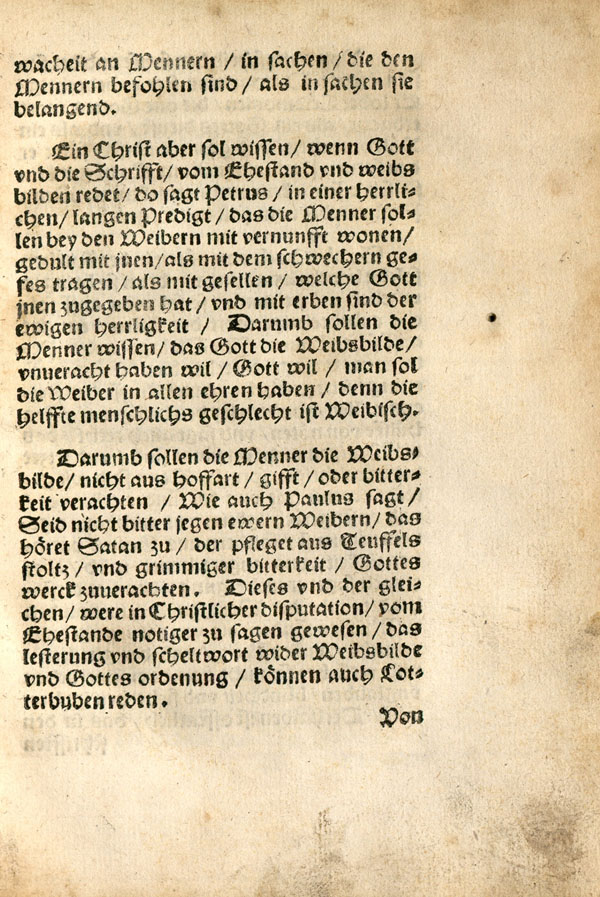 wacheit an Mennern / in sachen / die den
Mennern befohlen sind / als in sachen sie
belangend.
Ein Christ aber sol wissen / wenn Gott
vnd die Schrifft / vom Ehestand vnd weibs
bilden redet / do sagt Petrus / in einer herrli⸗
chen / langen Predigt / das die Menner sol⸗
len bey den Weibern mit vernunfft wonen /
gedult mit jnen / als mit dem schwechern ge⸗
fes tragen / als mit gesellen / welche Gott
jnen zugegeben hat / vnd mit erben sind der
ewigen herrligkeit / Darumb sollen die
Menner wissen / das Gott die Weibsbilde /
vnueracht haben wil / Gott wil / man sol
die Weiber in allen ehren haben / denn die
helffte menschlichs geschlecht ist Weibisch.
Darumb sollen die Menner die Weibs⸗
bilde / nicht aus hoffart / gifft / oder bitter⸗
keit verachten / Wie auch Paulus sagt /
Seid nicht bitter jegen ewern Weibern / das
höret Satan zu / der pfleget aus Teuffels
stoltz / vnd grimmiger bitterkeit / Gottes
werck zuuerachten. Dieses vnd der glei⸗
chen / were in Christlicher disputation / vom
Ehestande notiger zu sagen gewesen / das
lesterung vnd scheltwort wider Weibsbilde
vnd Gottes ordenung / können auch Lot⸗
terbuben reden.
Von